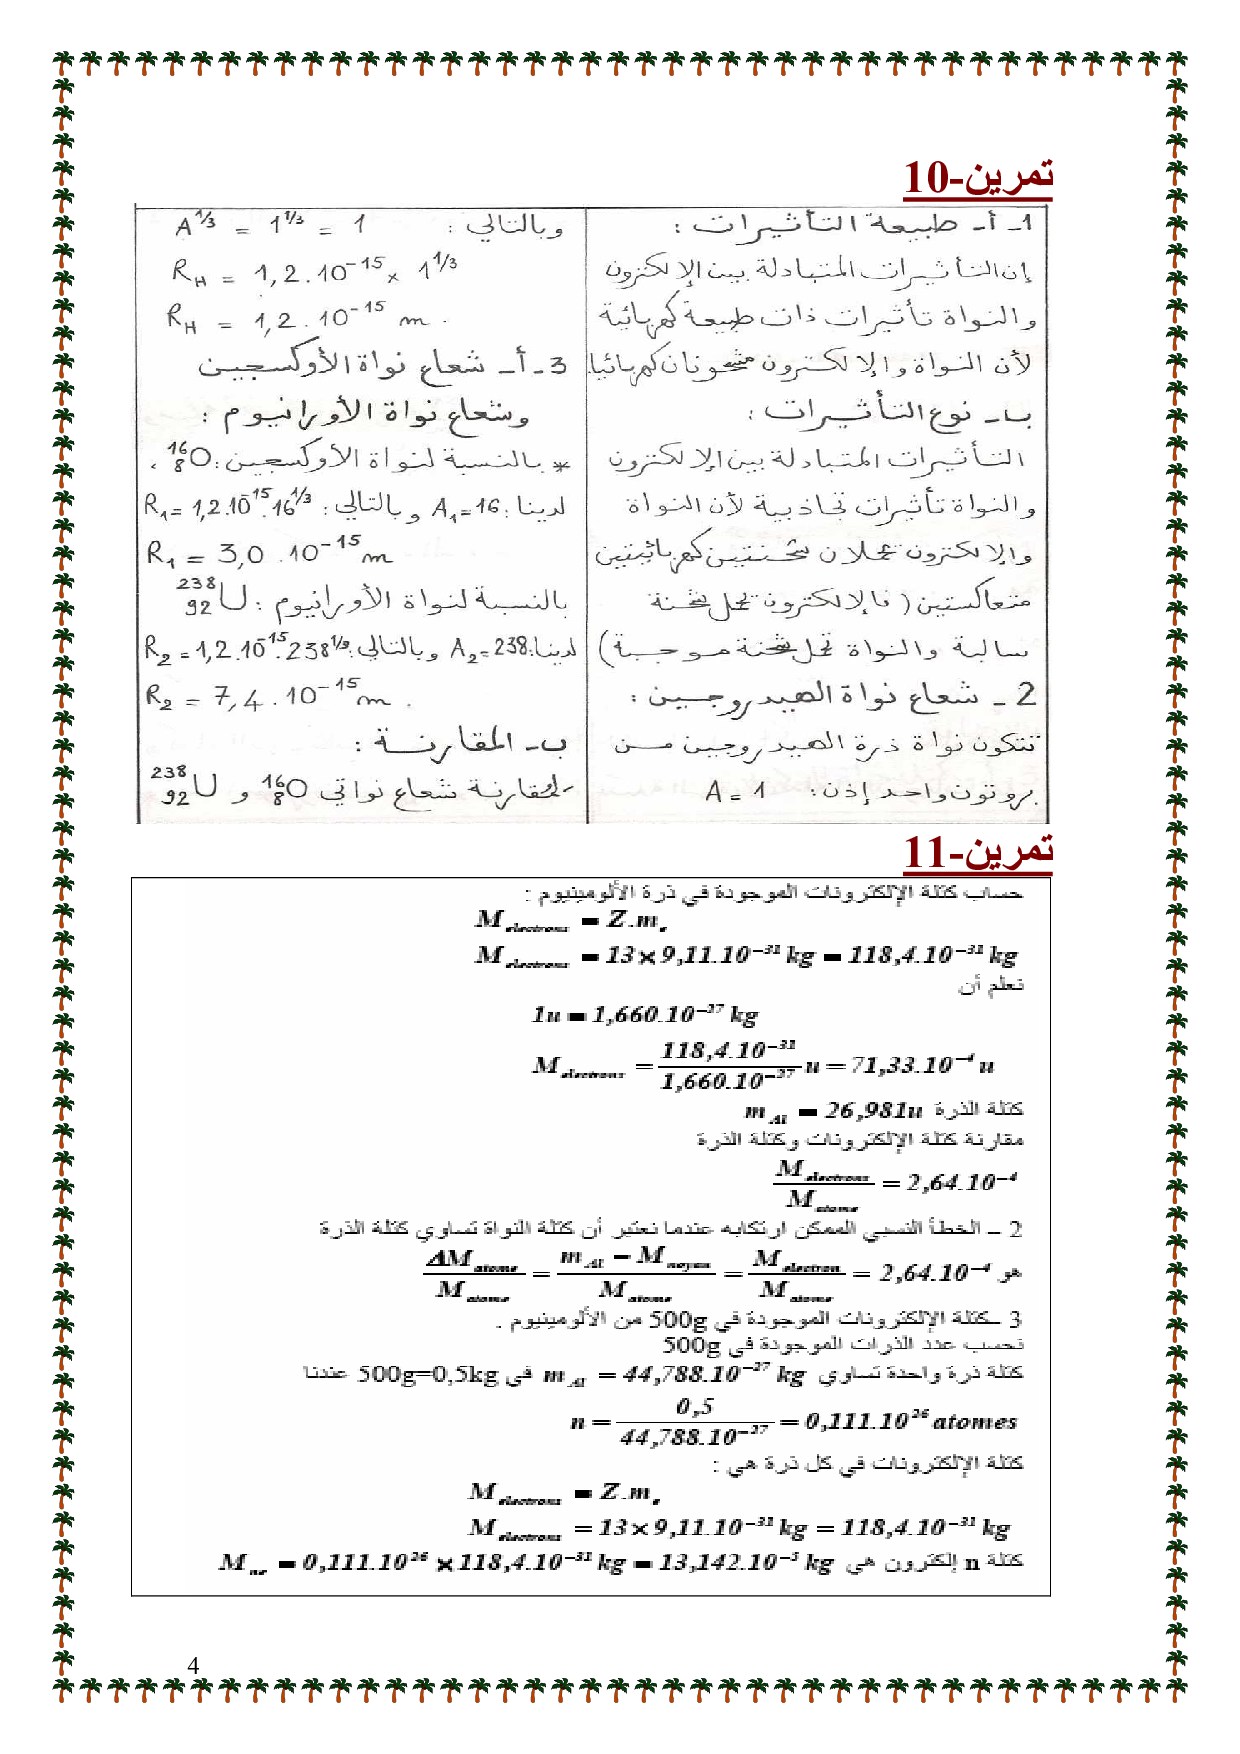 تمرين-10
1 ـ أ ـ طبيعة التأثيرات :
إن التأثيرات المتبادلة بين الإلكترون
والنواة تأثيرات ذات طبيعة كهربائية
لأن النواة والإلكترون مشحونان كهربائيا.
ب ـ نوع التأثيرات :
التأثيرات المتبادلة بين الإلكترون
والنواة تأثيرات تجاذبية لأن النواة
والإلكترون تحملان شحنتين كهربائيتين
متعاكستين ( فالإلكترون يحمل شحنة
سالبة والنواة تحمل شحنة موجبة)
2 ـ شعاع نواة الهيدروجين :
تتكون نواة ذرة الهيدروجين من
بروتون واحد إذن: A = 1
وبالتالي : A^{1/3} = 1^{1/3} = 1
R_H = 1,2.10^{-15} × 1^{1/3}
R_H = 1,2.10^{-15} m.
3 ـ أ ـ شعاع نواة الأوكسجين
وشعاع نواة الأورانيوم :
* بالنسبة لنواة الأوكسجين: ^{16}_{8}O ،
لدينا: A_1=16 وبالتالي: R_1=1,2.10^{-15}.16^{1/3}
R_1 = 3,0.10^{-15} m
بالنسبة لنواة الأورانيوم : ^{238}_{92}U
لدينا: A_2=238 وبالتالي: R_2=1,2.10^{-15}.238^{1/3}
R_2 = 7,4.10^{-15} m.
ب ـ المقارنة :
لمقارنة شعاع نواتي ^{16}_{8}O و ^{238}_{92}U
تمرين-11
حساب كتلة الإلكترونات الموجودة في ذرة الألومينيوم :
M_{electrons} = Z.m_e
M_{electrons} = 13×9,11.10^{-31} kg = 118,4.10^{-31} kg
نعلم أن
1u = 1,660.10^{-27} kg
M_{electrons} = \frac{118,4.10^{-31}}{1,660.10^{-27}} u = 71,33.10^{-4} u
كتلة الذرة m_{Al} = 26,981u
مقارنة كتلة الإلكترونات وكتلة الذرة
\frac{M_{electrons}}{M_{atome}} = 2,64.10^{-4}
2 – الخطأ النسبي الممكن ارتكابه عندما نعتبر أن كتلة النواة تساوي كتلة الذرة
هو \frac{ΔM_{atome}}{M_{atome}} = \frac{m_{Al} – M_{noyau}}{M_{atome}} = \frac{M_{electron}}{M_{atome}} = 2,64.10^{-4}
3 –كتلة الإلكترونات الموجودة في 500g من الألومينيوم .
نحسب عدد الذرات الموجودة في 500g
كتلة ذرة واحدة تساوي m_{Al} = 44,788.10^{-27} kg في 500g=0,5kg عندنا
n = \frac{0,5}{44,788.10^{-27}} = 0,111.10^{26} atomes
كتلة الإلكترونات في كل ذرة هي :
M_{electrons} = Z.m_e
M_{electrons} = 13×9,11.10^{-31} kg = 118,4.10^{-31} kg
كتلة n إلكترون هي M_{ne} = 0,111.10^{26} × 118,4.10^{-31} kg = 13,142.10^{-5} kg
4